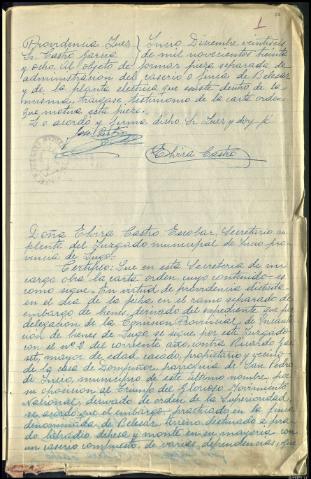 1
Providencia Juez } Incio Diciembre veintiseis
Sr Castro García } de mil novecientos treinta
y ocho. Al objeto de formar pieza separada de
administracion del caserio o finca de Belesar
y de la planta electrica que existe dentro de la
misma, traigase testimonio de la carta orden
que motiva esta pieza.
Lo acordó y firma dicho Sr Juez y doy fé
José Castro
Elvira Castro
Doña Elvira Castro Escobar, Secretario su
plente del Juzgado municipal de Incio pro
vincia de Lugo.
Certifico: Que en esta Secretaria de mi
cargo obra la carta orden cuyo contenido es
como sigue: En virtud de providencia dictada
en el dia de la fecha, en el ramo separado de
embargo de bienes, derivado del expediente que por
delegacion de la Comision Provincial de Incauta
cion de bienes de Lugo se sigue por este Juzgado
con el nº 2 del corriente año, contra Ricardo
mayor de edad, casado, propietario y vecino
de la casa de parroquia de San Pedro
de Incio, municipio de este ultimo nombre, por
su oposicion al triunfo del Glorioso Movimiento
Nacional, derivado de orden de la Superioridad,
se acordó que el embargo practicado en la finca
denominada de Belesar, terreno destinado a pra
do labradio, dehesa y monte en su mayoria con
un caserio compuesto de varias dependencias, que